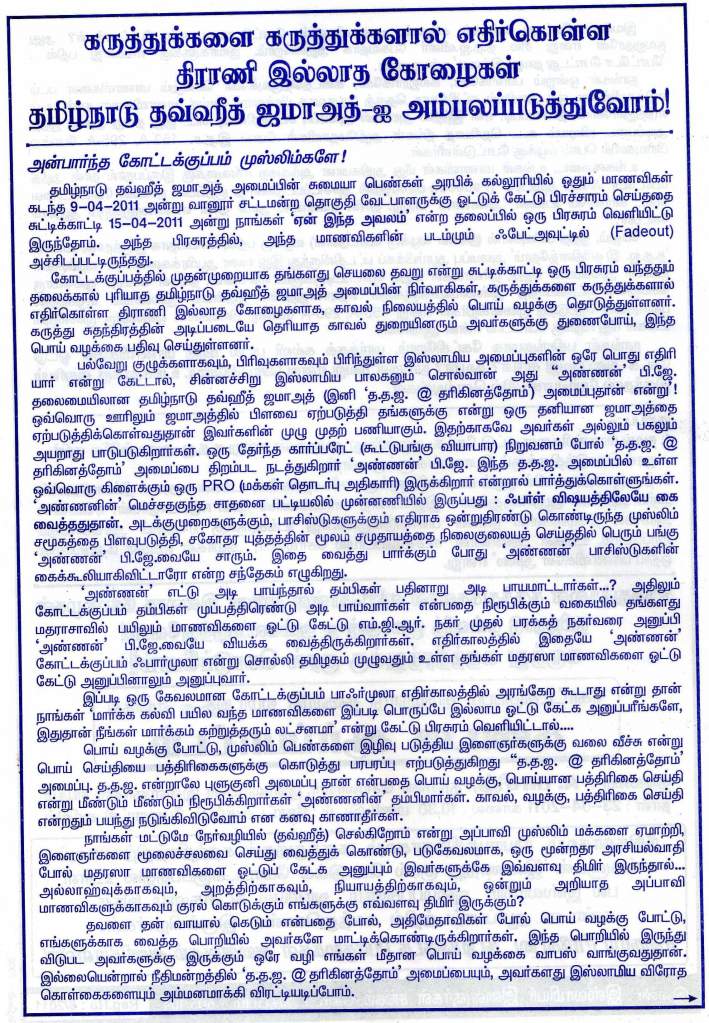 கருத்துக்களை கருத்துக்களால் எதிர்கொள்ள
திராணி இல்லாத கோழைகள்
தமிழ்நாடு தவ்ஹீத் ஜமாஅத்-ஐ அம்பலப்படுத்துவோம்!
அன்பார்ந்த கோட்டக்குப்பம் முஸ்லிம்களே!
தமிழ்நாடு தவ்ஹீத் ஜமாஅத் அமைப்பின் சுமையா பெண்கள் அரபிக் கல்லூரியில் ஓதும் மாணவிகள்
கடந்த 9-04-2011 அன்று வானூர் சட்டமன்ற தொகுதி வேட்பாளருக்கு ஓட்டுக் கேட்டு பிரச்சாரம் செய்ததை
சுட்டிக்காட்டி 15-04-2011 அன்று நாங்கள் ‘ஏன் இந்த அவலம்’ என்ற தலைப்பில் ஒரு பிரசுரம் வெளியிட்டு
இருந்தோம். அந்த பிரசுரத்தில், அந்த மாணவிகளின் படமும் ஃபேட்அவுட்டில் (Fadeout)
அச்சிடப்பட்டிருந்தது.
கோட்டக்குப்பத்தில் முதன்முறையாக தங்களது செயலை தவறு என்று சுட்டிக்காட்டி ஒரு பிரசுரம் வந்ததும்
தலைக்கால் புரியாத தமிழ்நாடு தவ்ஹீத் ஜமாஅத் அமைப்பின் நிர்வாகிகள், கருத்துக்களை கருத்துக்களால்
எதிர்கொள்ள திராணி இல்லாத கோழைகளாக, காவல் நிலையத்தில் பொய் வழக்கு தொடுத்துள்ளனர்.
கருத்து சுதந்திரத்தின் அடிப்படையே தெரியாத காவல் துறையினரும் அவர்களுக்கு துணைபோய், இந்த
பொய் வழக்கை பதிவு செய்துள்ளனர்.
பல்வேறு குழுக்களாகவும், பிரிவுகளாகவும் பிரிந்துள்ள இஸ்லாமிய அமைப்புகளின் ஒரே பொது எதிரி
யார் என்று கேட்டால், சின்னச்சிறு இஸ்லாமிய பாலகனும் சொல்வான் அது “அண்ணன்” பி.ஜே.
தலைமையிலான தமிழ்நாடு தவ்ஹீத் ஜமாஅத் (இனி ‘த.த.ஜ. @ தரிகினத்தோம்’) அமைப்புதான் என்று’!
ஒவ்வொரு ஊரிலும் ஜமாஅத்தில் பிளவை ஏற்படுத்தி தங்களுக்கு என்று ஒரு தனியான ஜமாஅத்தை
ஏற்படுத்திக்கொள்வதுதான் இவர்களின் முழு முதற் பணியாகும். இதற்காகவே அவர்கள் அல்லும் பகலும்
அயராது பாடுபடுகிறார்கள். ஒரு தேர்ந்த கார்ப்பரேட் (கூட்டுபங்கு வியாபார) நிறுவனம் போல் ‘த.த.ஜ. @
தரிகினத்தோம்’ அமைப்பை திறம்பட நடத்துகிறார் ‘அண்ணன்’ பி.ஜே. இந்த த.த.ஜ. அமைப்பில் உள்ள
ஒவ்வொரு கிளைக்கும் ஒரு PRO (மக்கள் தொடர்பு அதிகாரி) இருக்கிறார் என்றால் பார்த்துக்கொள்ளுங்கள்.
‘அண்ணனின்’ மெச்சதகுந்த சாதனை பட்டியலில் முன்னணியில் இருப்பது : ஃபர்ள் விஷயத்திலேயே கை
வைத்ததுதான். அடக்குமுறைகளுக்கும், பாசிஸ்டுகளுக்கும் எதிராக ஒன்றுதிரண்டு கொண்டிருந்த முஸ்லிம்
சமூகத்தை பிளவுபடுத்தி, சகோதர யுத்தத்தின் மூலம் சமுதாயத்தை நிலைகுலையச் செய்ததில் பெரும் பங்கு
‘அண்ணன்’ பி.ஜே.வையே சாரும். இதை வைத்து பார்க்கும் போது ‘அண்ணன்’ பாசிஸ்டுகளின்
கைக்கூலியாகிவிட்டாரோ என்ற சந்தேகம் எழுகிறது.
‘அண்ணன்’ எட்டு அடி பாய்ந்தால் தம்பிகள் பதினாறு அடி பாயமாட்டார்கள்...? அதிலும்
கோட்டக்குப்பம் தம்பிகள் முப்பத்திரெண்டு அடி பாய்வார்கள் என்பதை நிரூபிக்கும் வகையில் தங்களது
மதராசாவில் பயிலும் மாணவிகளை ஓட்டு கேட்டு எம்.ஜி.ஆர். நகர் முதல் பரக்கத் நகர்வரை அனுப்பி
‘அண்ணன்’ பி.ஜே.வையை வியக்க வைத்திருக்கிறார்கள். எதிர்காலத்தில் இதையே ‘அண்ணன்’
கோட்டக்குப்பம் ஃபார்முலா என்று சொல்லி தமிழகம் முழுவதும் உள்ள தங்கள் மதரஸா மாணவிகளை ஓட்டு
கேட்டு அனுப்பினாலும் அனுப்புவார்.
இப்படி ஒரு கேவலமான கோட்டக்குப்பம் பாஃர்முலா எதிர்காலத்தில் அரங்கேற கூடாது என்று தான்
நாங்கள் ‘மார்க்க கல்வி பயில வந்த மாணவிகளை இப்படி பொருப்பே இல்லாம ஓட்டு கேட்க அனுப்பரீங்களே,
இதுதான் நீங்கள் மார்க்கம் கற்றுத்தரும் லட்சனமா’ என்று கேட்டு பிரசுரம் வெளியிட்டால்....
பொய் வழக்கு போட்டு, முஸ்லிம் பெண்களை இழிவு படுத்திய இளைஞர்களுக்கு வலை வீச்சு என்று
பொய் செய்தியை பத்திரிகைகளுக்கு கொடுத்து பரபரப்பு எற்படுத்துகிறது “த.த.ஜ. @ தரிகினத்தோம்”
அமைப்பு. த.த.ஜ. என்றாலே புளுகுனி அமைப்பு தான் என்பதை பொய் வழக்கு, பொய்யான பத்திரிகை செய்தி
என்று மீண்டும் மீண்டும் நிரூபிக்கிறார்கள் ‘அண்ணனின்’ தம்பிமார்கள். காவல், வழக்கு, பத்திரிகை செய்தி
என்றதும் பயந்து நடுங்கிவிடுவோம் என கனவு காணாதீர்கள்.
நாங்கள் மட்டுமே நேர்வழியில் (தவ்ஹீத்) செல்கிறோம் என்று அப்பாவி முஸ்லிம் மக்களை ஏமாற்றி,
இளைஞர்களை மூலைச்சலவை செய்து வைத்துக் கொண்டு, படுகேவலமாக, ஒரு மூன்றதர அரசியல்வாதி
போல் மதரஸா மாணவிகளை ஓட்டுப் கேட்க அனுப்பும் இவர்களுக்கே இவ்வளவு திமிர் இருந்தால்...
அல்லாஹ்வுக்காகவும், அறத்திற்காகவும், நியாயத்திற்காகவும், ஒன்றும் அறியாத அப்பாவி
மாணவிகளுக்காகவும் குரல் கொடுக்கும் எங்களுக்கு எவ்வளவு திமிர் இருக்கும்?
தவளை தன் வாயால் கெடும் என்பதை போல், அதிமேதாவிகள் போல் பொய் வழக்கு போட்டு,
எங்களுக்காக வைத்த பொறியில் அவர்களே மாட்டிக்கொண்டிருக்கிறார்கள். இந்த பொறியில் இருந்து
விடுபட அவர்களுக்கு இருக்கும் ஒரே வழி எங்கள் மீதான பொய் வழக்கை வாபஸ் வாங்குவதுதான்.
இல்லையென்றால் நீதிமன்றத்தில் ‘த.த.ஜ. @ தரிகினத்தோம்’ அமைப்பையும், அவர்களது இஸ்லாமிய விரோத
கொள்கைகளையும் அம்மனமாக்கி விரட்டியடிப்போம்.